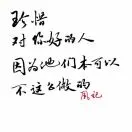 珍惜
对你好的人
因为他们本可以
不这么做的
周记